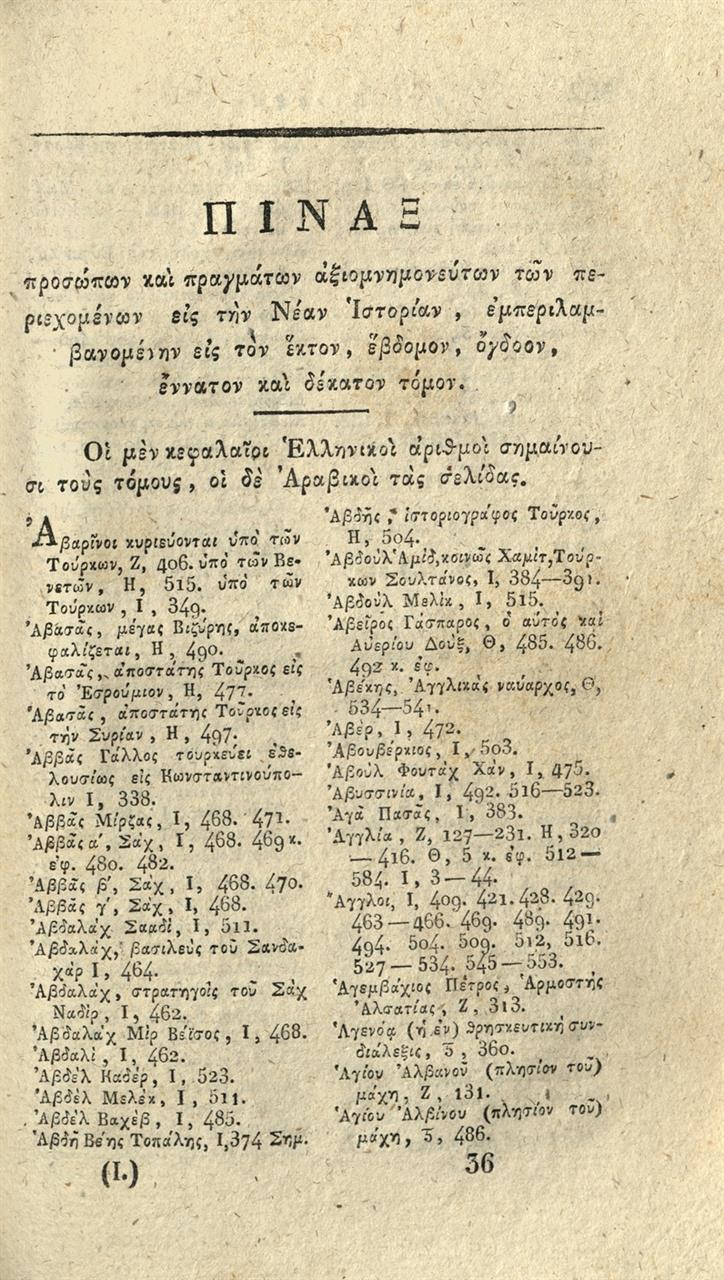 ΠΙΝΑΞ
προσώπων καὶ πραγμάτων ἀξιομνημονεύτων τῶν πε-
ριεχομένων εἰς τὴν Νέαν Ἱστορίαν, ἐμπεριλαμ-
βανομένην εἰς τὸν ἕκτον, ἕβδομον, ὄγδοον,
ἔννατον καὶ δέκατον τόμον.
Οἱ μὲν κεφαλαῖοι Ἑλληνικοὶ ἀριθμοὶ σημαίνου-
σι τοὺς τόμους, οἱ δὲ Ἀραβικοὶ τὰς σελίδας.
Ἀβαρῖνοι κυριεύονται ὑπὸ τῶν
Τούρκων, Ζ, 406. ὑπὸ τῶν Βε-
νετῶν, Η, 515. ὑπὸ τῶν
Τούρκων, Ι, 349.
Ἀβασᾶς, μέγας Βιζύρης, ἀποκε-
φαλίζεται, Η, 490.
Ἀβασᾶς, ἀποστάτης Τοῦρκος εἰς
τὸ Ἐσρούμιον, Η, 477.
Ἀβασᾶς, ἀποστάτης Τοῦρκος εἰς
τὴν Συρίαν, Η, 497.
Ἀββᾶς Γάλλος τουρκεύει ἐθε-
λουσίως εἰς Κωνσταντινούπο-
λιν Ι, 338.
Ἀββᾶς Μίρζας, Ι, 468. 471.
Ἀββᾶς α΄, Σὰχ, Ι, 468. 469 κ.
ἐφ. 480. 482.
Ἀββᾶς β΄, Σὰχ, Ι, 468. 470.
Ἀββᾶς γ΄, Σὰχ, Ι, 468.
Ἀβδαλὰχ Σααδὶ, Ι, 511.
Ἀβδαλὰχ, βασιλεὺς τοῦ Σανδα-
χάρ Ι, 464.
Ἀβδαλὰχ, στρατηγοὶς τοῦ Σὰχ
Ναδὶρ, Ι, 462.
Ἀβδαλὰχ Μὶρ Βεῖσος, Ι, 468.
Ἀβδαλὶ, Ι, 462.
Ἀβδὲλ Καδὲρ, Ι, 523.
Ἀβδὲλ Μελὲκ, Ι, 511.
Ἀβδὲλ Βαχὲβ, Ι, 485.
Ἀβδῆ Βέης Τοπάλης, Ι, 374 Σημ.
(Ι.)
Ἀβδῆς, ἱστοριογράφος Τοῦρκος,
Η, 504.
Ἀβδοὺλ Ἀμὶδ, κοινῶς Χαμὶτ, Τούρ-
κων Σουλτάνος, Ι, 384—391.
Ἀβδοὺλ Μελὶκ, Ι, 515.
Ἀβεῖρὸς Γάσπαρος, ὁ αὐτὸς καὶ
Αὐερίου Δοὺξ, Θ, 485. 486.
492 κ. ἐφ.
Ἀβέκης, Ἀγγλικὰς ναύαρχος, Θ,
534—541.
Ἀβὲρ, Ι, 472.
Ἀβουβέρκιος, Ι, 503.
Ἀβοὺλ Φουτὰχ Χὰν, Ι, 475.
Ἀβυσσινία, Ι, 492. 516—523.
Ἀγὰ Πασᾶς, Ι, 383.
Ἀγγλία, Ζ, 127—231. Η, 320
—416. Θ, 5 κ. ἐφ. 512—
584. Ι, 3—44.
Ἄγγλοι, Ι, 409. 421. 428. 429.
463—466. 469. 489. 491.
494. 504. 509. 512, 516.
527—534. 545—553.
Ἀγεμβάχιος Πέτρος, Ἁρμοστὴς
Ἀλσατίας, Ζ, 313.
Ἀγενόᾳ (ἡ ἐν) θρησκευτικὴ συν-
διάλεξις, Ϛ, 360.
Ἁγίου Ἀλβανοῦ (πλησίον τοῦ)
μάχη, Ζ, 131.
Ἁγίου Ἀλβίνου (πλησίον τοῦ)
μάχη, Ϛ, 486.
36